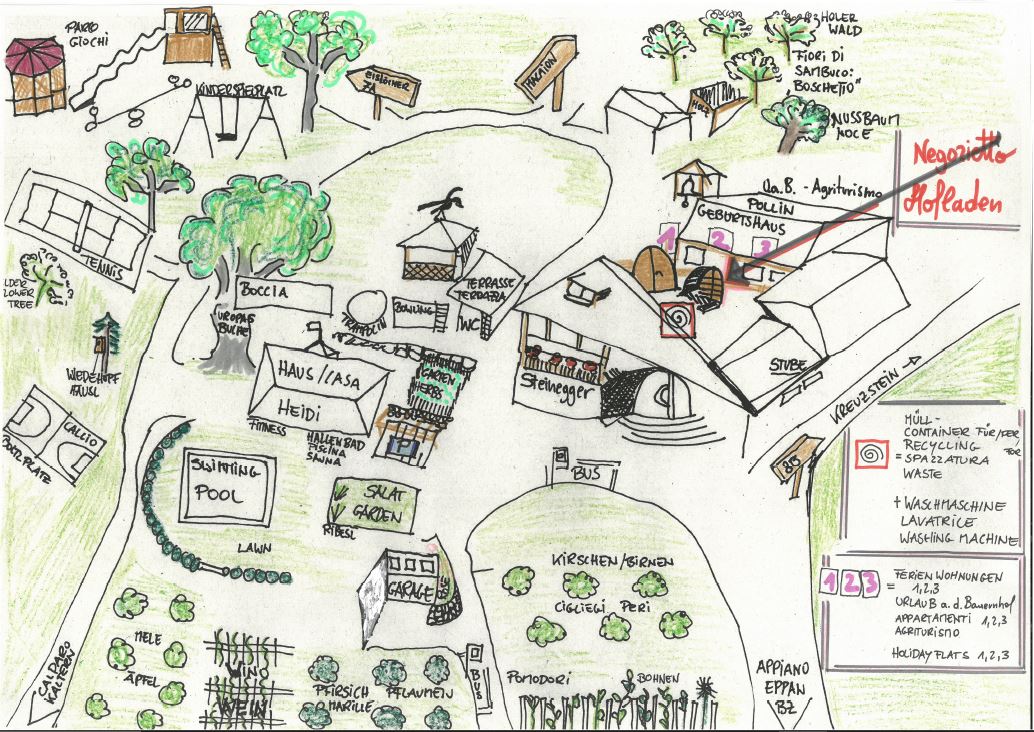 PARCO
GIOCHI
KINDERSPIELPLATZ
EISLÖCHER
MACAION
HOLER
WALD
FIORI DI
SAMBUCO:
BOSCHETTO"
HOLZ
NUSSBAUM
NOCE
Negozietto
Hofladen
Ua.B. - Agriturismo
POLLIN
GEBURTSHAUS
1 2 3
TENNIS
LDER
LOWER
TREE
BOCCIA
UROPAS
BUCHE
TRAMPOLIN
BOWLING
TERRASSE
TERRAZZA
WC
WIEDEHOPF
HÄUSL
HAUS/CASA
HEIDI
FITNESS
GARTEN
HERBS
HALLENBAD
PISCINA
SAUNA
Steinegger
STUBE
KREUZSTEIN →
CALCIO
BOLZPLATZ
SWIMMING
POOL
LAWN
SALAT
GARDEN
RIBESL
BUS
85
MÜLL-
CONTAINER FÜR/PER
RECYCLING TOR
= SPAZZATURA
WASTE
+ WASCHMASCHINE
LAVATRICE
WASHING MACHINE
GARAGE
KIRSCHEN/BIRNEN
CIGLIEGI PERI
1 2 3 = FERIENWOHNUNGEN
1,2,3
URLAUB a.d. Bauernhof
APPARTAMENTI 1,2,3
AGRITURISMO
HOLIDAY FLATS 1,2,3
MELE
ÄPFEL
VINO
WEIN
PFIRSICH
MARILLE
PFLAUMEN
BUS
POMODORI
BOHNEN
CALDARO
KALTERN
APPIANO
EPPAN
BZ